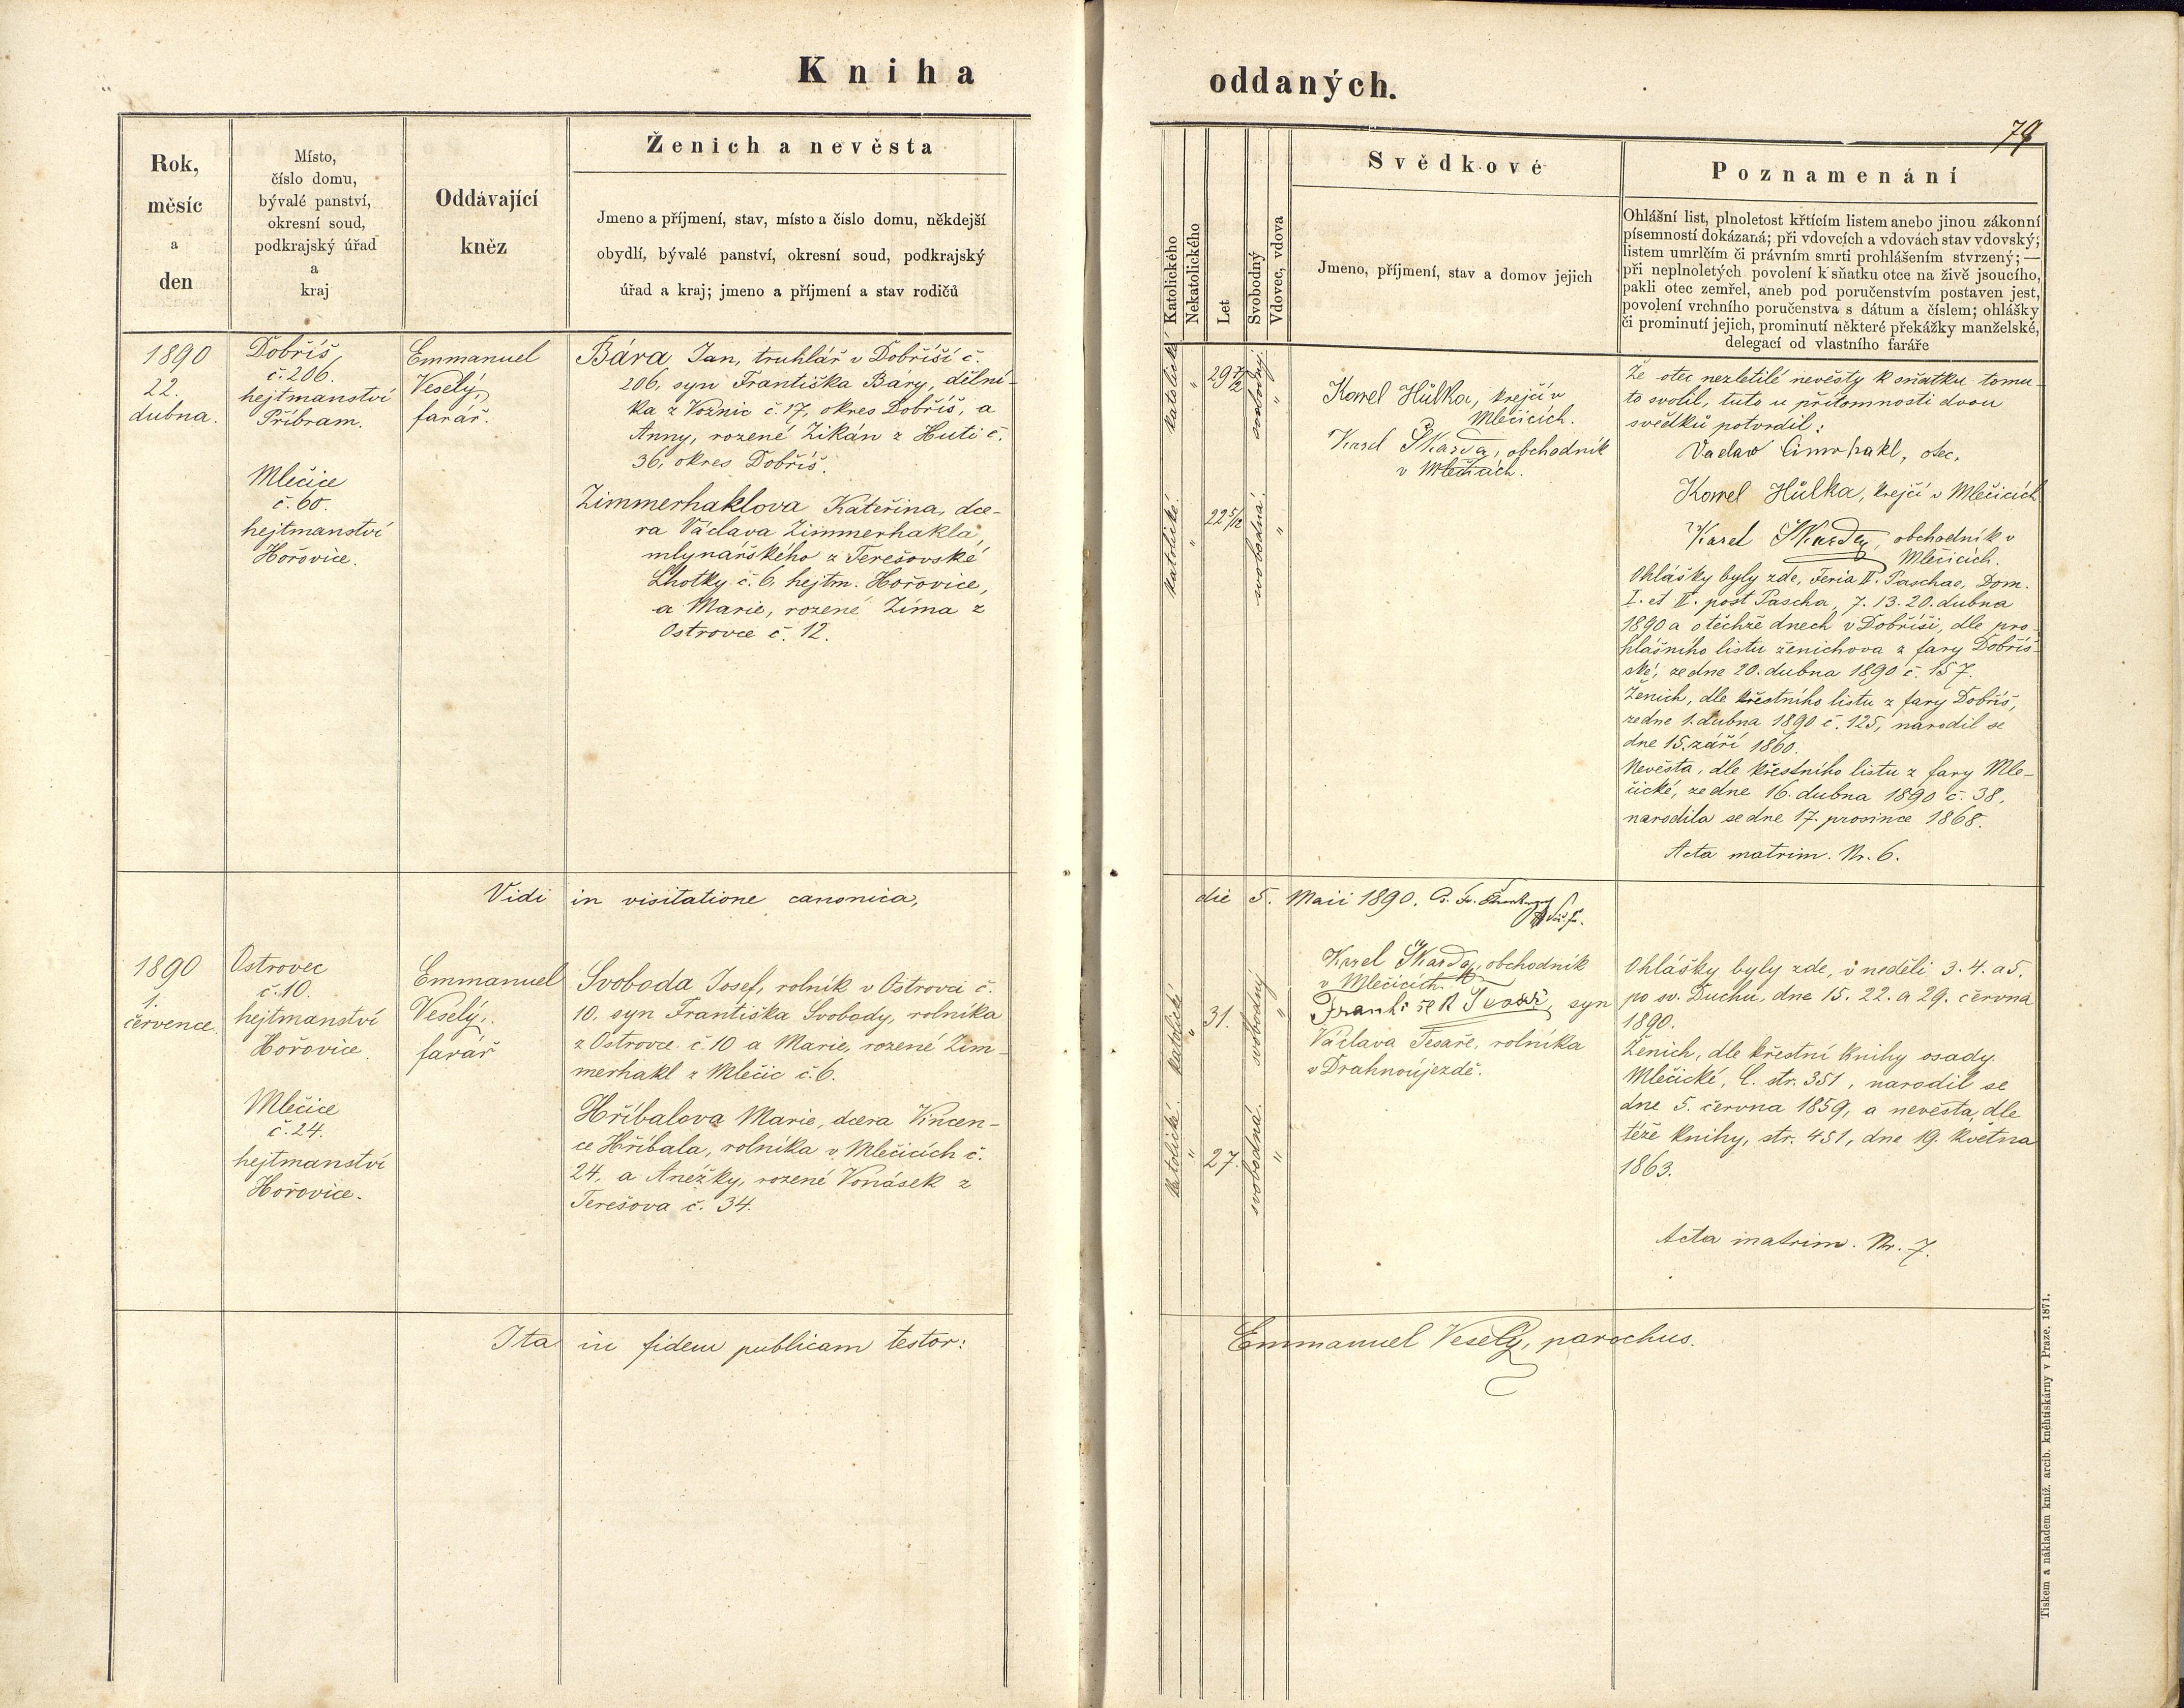 Kniha
oddaných.
79
Rok,
měsíc
a
den
Místo,
číslo domu,
bývalé panství,
okresní soud,
podkrajský úřad
a
kraj
Oddávající
kněz
Ženich a nevěsta
Jmeno a příjmení, stav, místo a číslo domu, někdejší
obydlí, bývalé panství, okresní soud, podkrajský
úřad a kraj; jmeno a příjmení a stav rodičů
Katolického
Nekatolického
Let
Svobodný
Vdovec, vdova
Svědkové
Jmeno, příjmení, stav a domov jejich
Poznamenání
Ohlášní list, plnoletost křtícím listem anebo jinou zákonní
písemností dokázaná; při vdovcích a vdovách stav vdovský;
listem umrlčím či právním smrti prohlášením stvrzený;—
při neplnoletých povolení k sňatku otce na živě jsoucího,
pakli otec zemřel, aneb pod poručenstvím postaven jest,
povolení vrchního poručenstva s dátum a číslem; ohlášky
či prominutí jejich, prominutí některé překážky manželské,
delegací od vlastního faráře
1890
22.
dubna.
Dobříš,
č. 206.
hejtmanství
Příbram.
Mlečice
č. 60.
hejtmanství
Hořovice.
Emmanuel
Veselý,
farář.
Bára Jan, truhlář v Dobříši č.
206, syn Františka Báry, dělní-
ka z Voznic č. 17, okres Dobříš, a
Anny, rozené Zikán z Huti č.
36, okres Dobříš.
Zimmerhaklova Kateřina, dce-
ra Václava Zimmerhakla,
mlynářského z Terešovské
Lhotky č. 6, hejtm. Hořovice,
a Marie, rozené Zíma z
Ostrovce č. 12.
katolické
"
29 7/12
svobodný
"
katolické
"
22 5/12
svobodná.
"
Karel Hůlka, krejčí v
Mlečicích.
Karel Škarda, obchodník
v
Že otec nezletilé nevěsty k sňatku tomu-
to svolil, tuto u přítomnosti dvou
svědků potvrdil:
Vaclav Cimrhakl, otec.
Karel Hůlka, krejčí v Mlečicích
Karel Škarda, obchodník v
Mlečicích.
Ohlášky byly zde, Feria II. Paschae, Dom.
I. et II. post Pascha, 7. 13. 20. dubna
1890 a o těchže dnech v Dobříši, dle pro-
hlášního listu ženichova z fary Dobříš-
ské, ze dne 20. dubna 1890 č. 157.
Ženich, dle křestního listu z fary Dobříš,
ze dne 1. dubna 1890 č. 125, narodil se
dne 15. září 1860.
Nevěsta, dle křestního listu z fary Mle-
čické, ze dne 16. dubna 1890 č. 38,
narodila se dne 17. prosince 1868.
Acta matrim. Nr. 6.
Vidi in visitatione canonica,
die 5. Maii 1890.
1890
1.
července.
Ostrovec
č. 10.
hejtmanství
Hořovice.
Mlečice
č. 24.
hejtmanství
Hořovice.
Emmanuel
Veselý,
farář
Svoboda Josef, rolník v Ostrovci č.
10, syn Františka Svobody, rolníka
z Ostrovce č. 10 a Marie, rozené Zim-
merhakl z Mlečic č. 6.
Hříbalova Marie, dcera Vincen-
ce Hříbala, rolníka v Mlečicích č.
24, a Anežky, rozené Vonásek z
Terešova č. 34.
katolické
"
31.
svobodný
"
katolické.
"
27.
svobodná.
"
Karel Škarda, obchodník
v Mlečicích.
František Tesař, syn
Václava Tesaře, rolníka
v Drahnoújezdě.
Ohlášky byly zde, v neděli 3. 4. a 5.
po sv. Duchu, dne 15. 22. a 29. června
1890.
Ženich, dle křestní knihy osady
Mlečické, C. str. 351, narodil se
dne 5. června 1859, a nevěsta, dle
téže knihy, str. 451, dne 19. května
1863.
Acta matrim. Nr. 7.
Ita in fidem publicam testor:
Emmanuel Veselý, parochus.
Tiskem a nákladem kníž. arcib. kněhtiskárny v Praze. 1871.